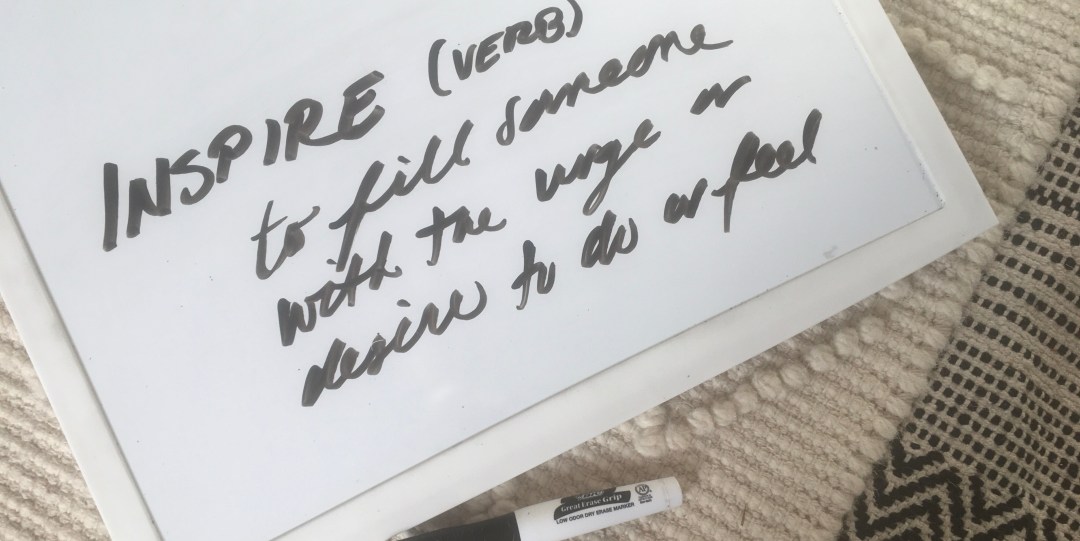 INSPIRE (VERB)
to fill someone
with the urge or
desire to do or feel
Great Erase Grip
LOW ODOR DRY ERASE MARKER